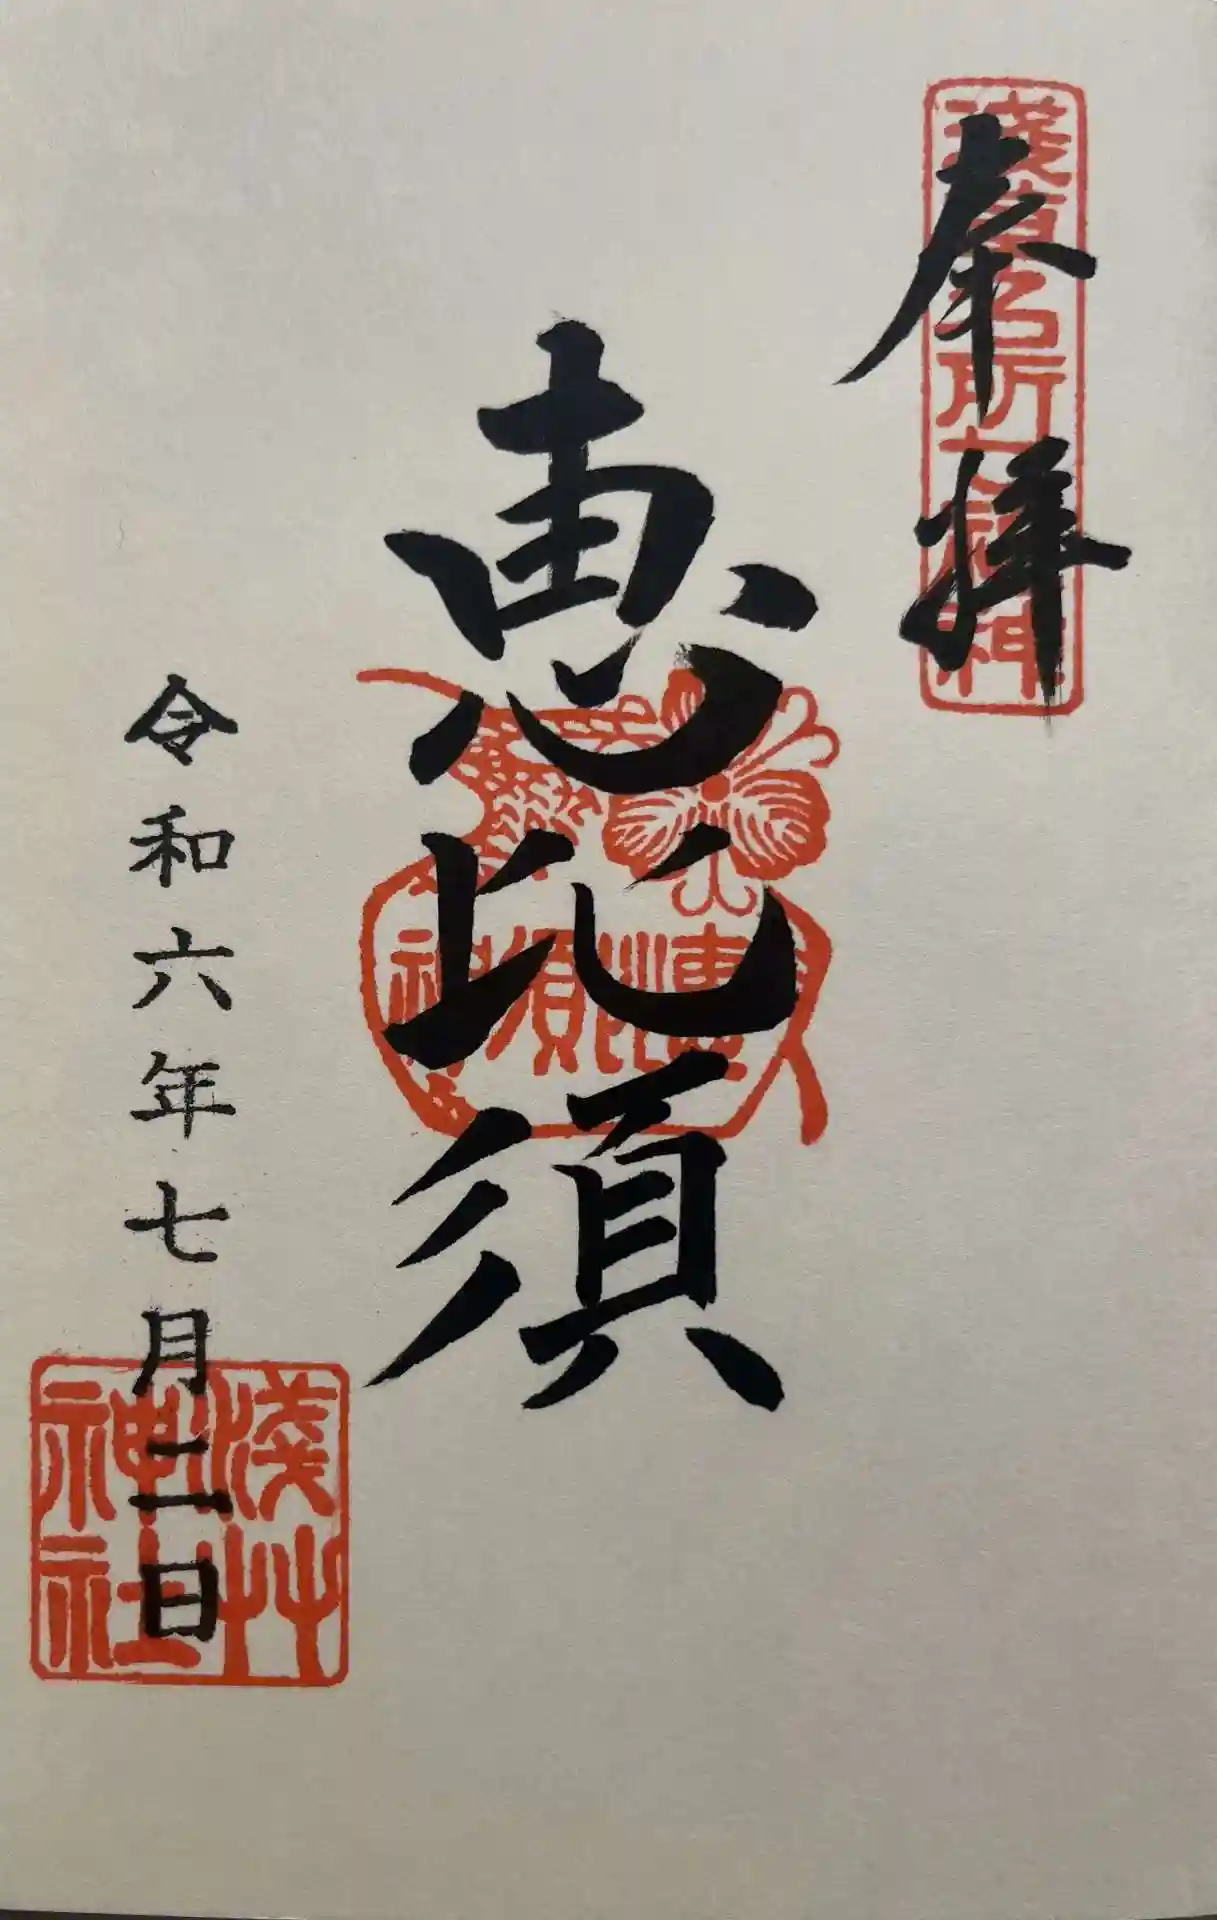 奉拝
浅草名所七福神
恵比須
恵比須神
令和六年七月二日
浅草神社